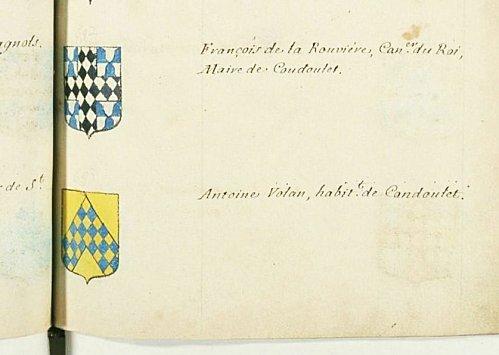 agnols.
François de la Rouvière, Con.er du Roi,
Maire de Coudoulet.
de S.t
Antoine Volan, habit.t de Condoulet.